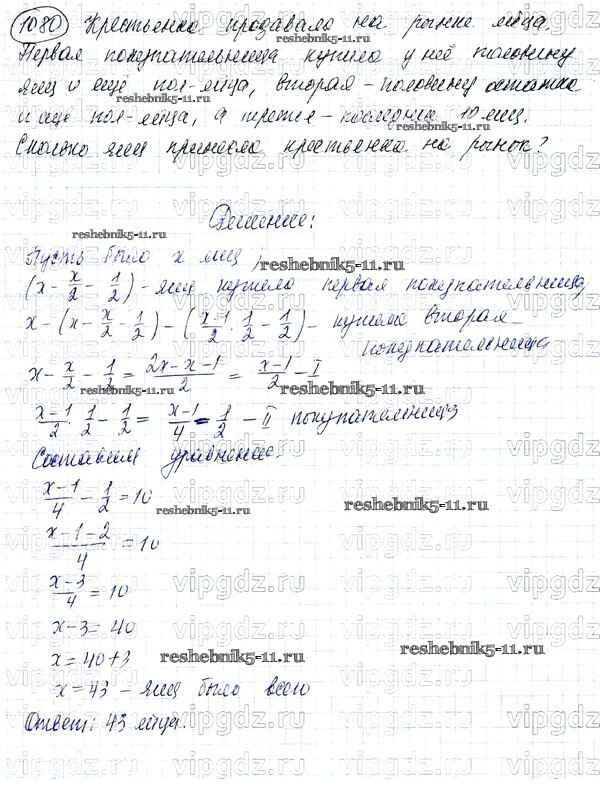 1080 Крестьянка продавала на рынке яйца.
Первая покупательница купила у неё половину
яиц и ещё пол-яйца, вторая - половину остатка
и ещё пол-яйца, а третья - последние 10 яиц.
Сколько яиц принесла крестьянка на рынок?
reshebnik5-11.ru
Решение:
Пусть было x яиц,
(x - x/2 - 1/2) - яиц купила первая покупательница,
x - (x - x/2 - 1/2) - (x-1/2 · 1/2 - 1/2) - купила вторая
покупательница
x - x/2 - 1/2 = 2x-x-1/2 = x-1/2 - I
x-1/2 · 1/2 - 1/2 = x-1/4 - 1/2 - II покупательница
Составим уравнение.
x-1/4 - 1/2 = 10
x-1-2/4 = 10
x-3/4 = 10
x-3 = 40
x = 40+3
x = 43 - яиц было всего
Ответ: 43 яйца.
vipgdz.ru